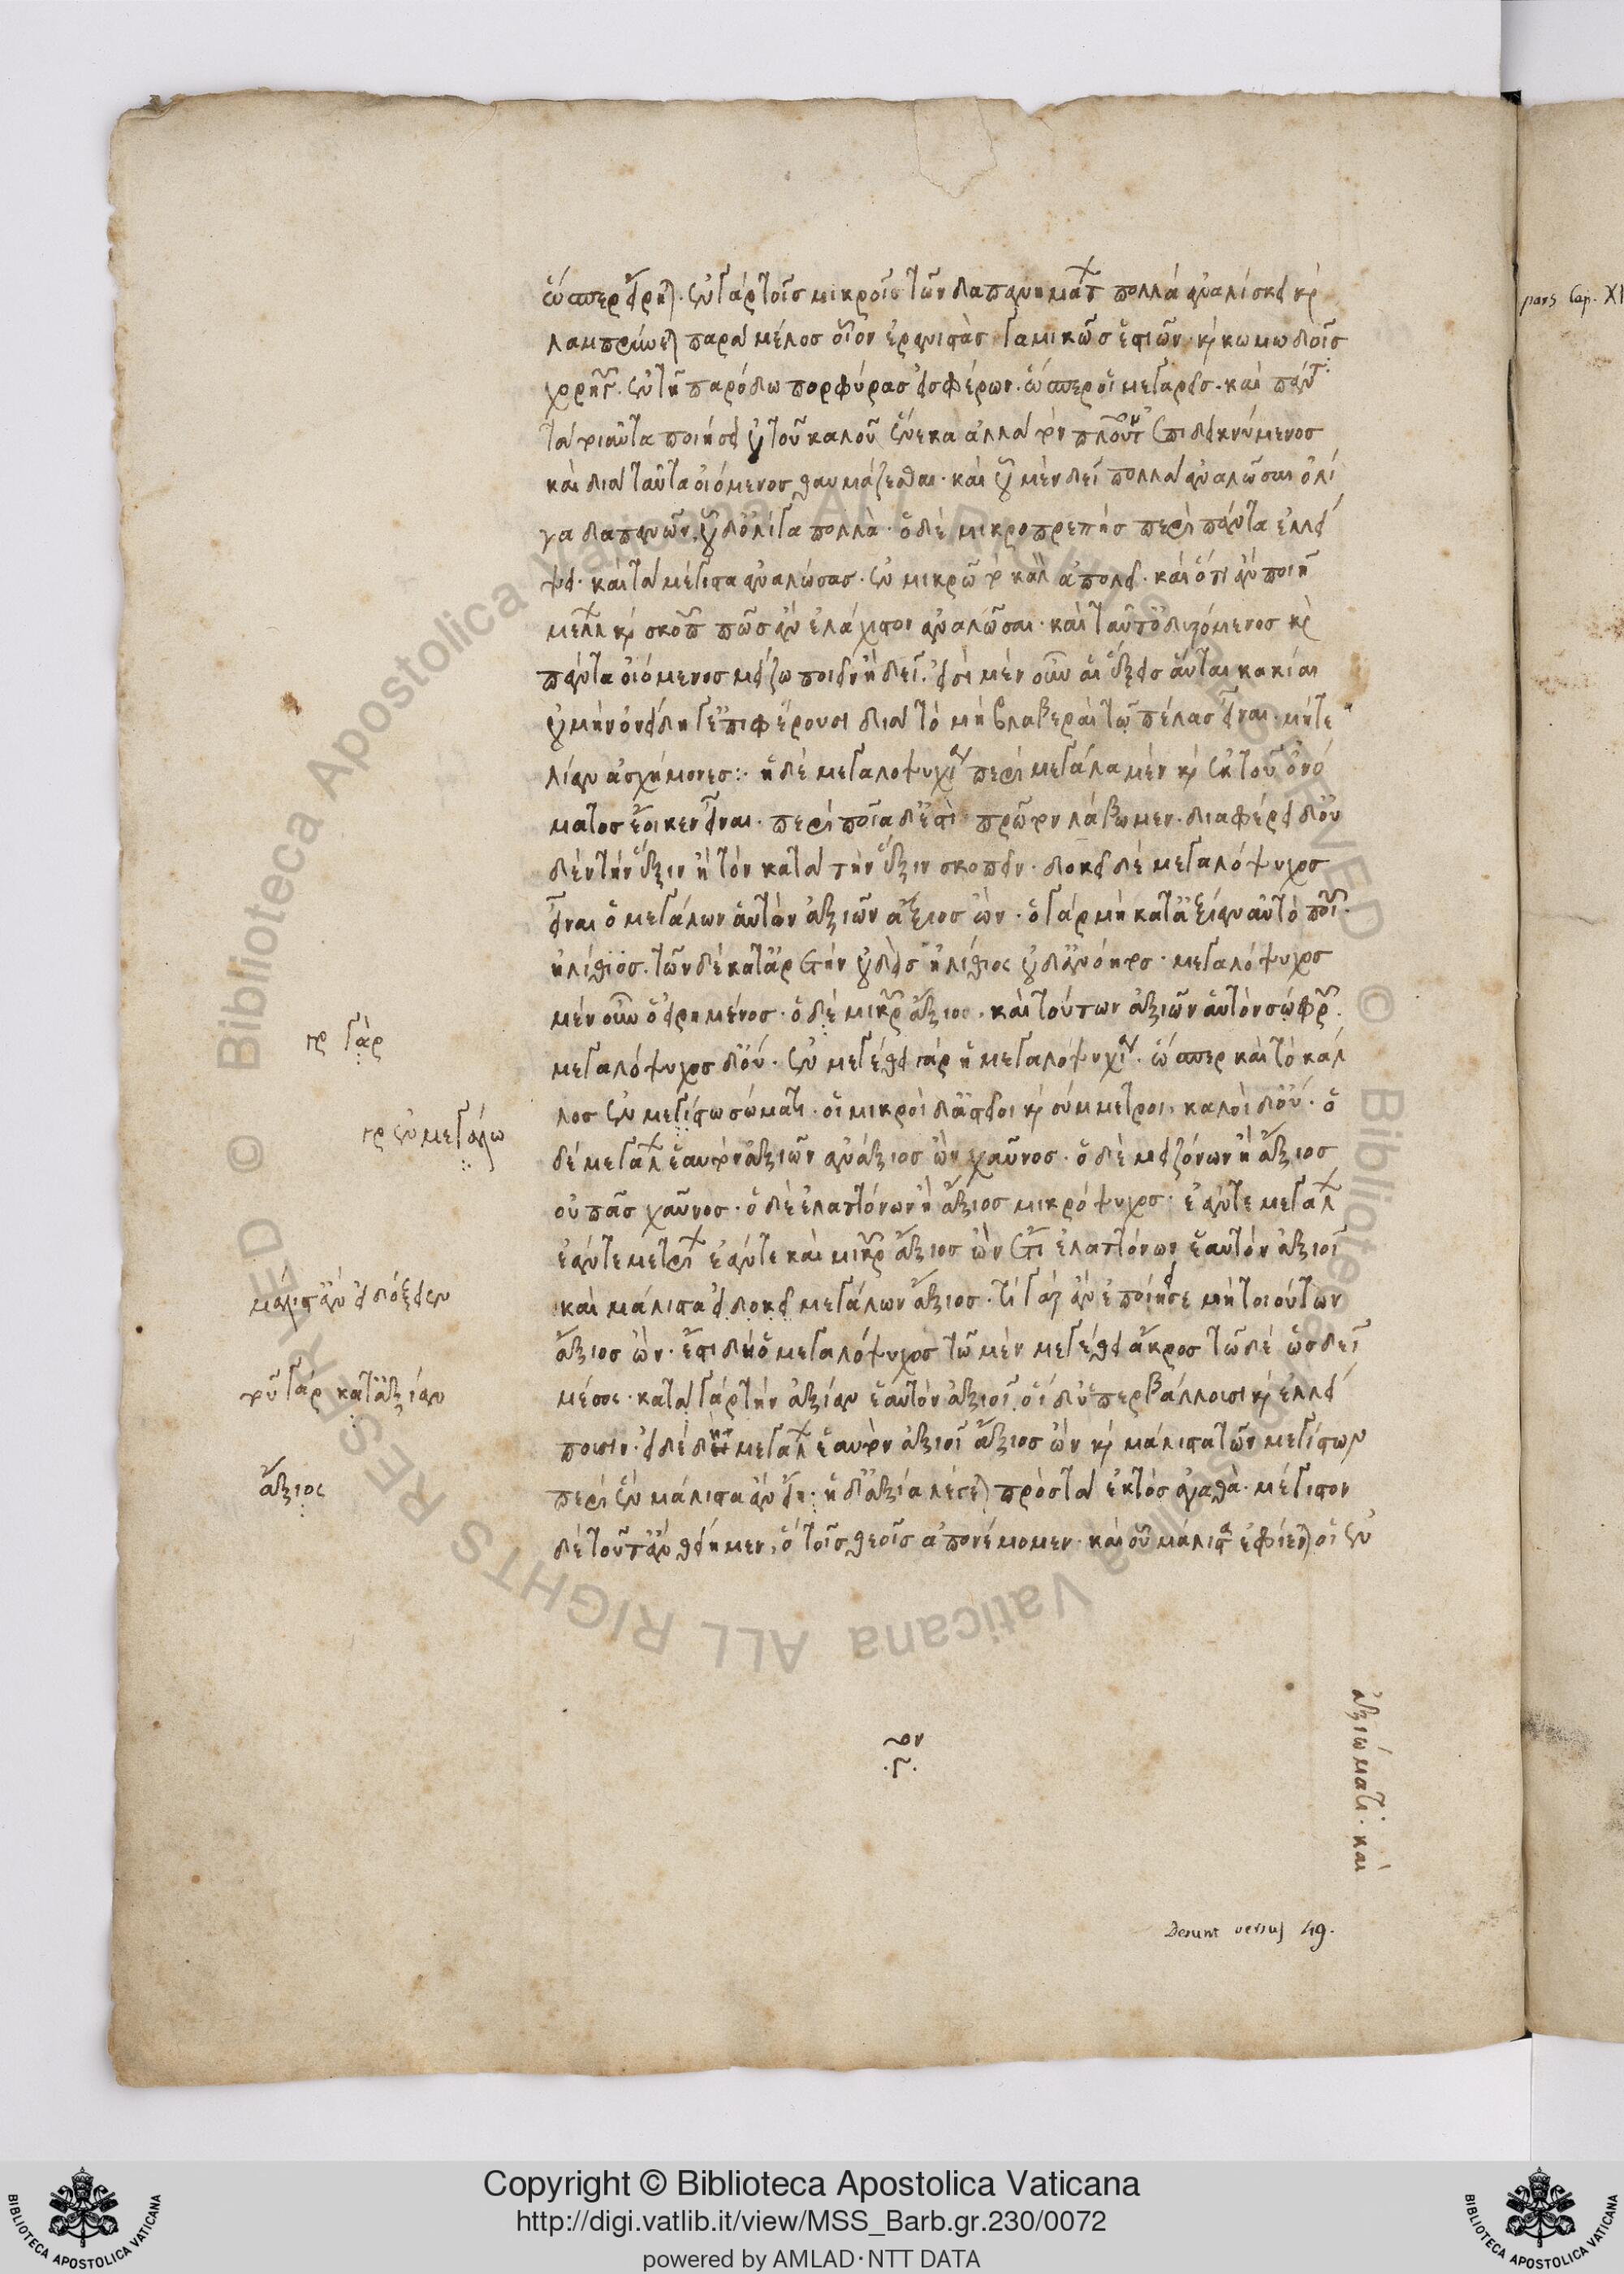 ὥσπερ εἴρηται. ἐν γὰρ τοῖς μικροῖς τῶν δαπανημάτων πολλὰ ἀναλίσκει καὶ
λαμπρύνεται παρὰ μέλος οἷον ἐρανιστὰς γαμικῶς ἑστιῶν. καὶ κωμωδοῖς
χορηγῶν ἐν τῆ παρόδω πορφύρας εἰσφέρων. ὥσπερ οἱ μεγαρεῖς. καὶ πάντα
τὰ τοιαῦτα ποιήσει οὐ τοῦ καλοῦ ἕνεκα ἀλλὰ τὸν πλοῦτον ἐπιδεικνύμενος
καὶ διὰ ταῦτα οἰόμενος θαυμάζεσθαι. καὶ οὗ μὲν δεῖ πολλὰ ἀναλῶσαι ὀλί
γα δαπανῶν. οὗ δ' ὀλίγα πολλὰ. ὁ δὲ μικροπρεπὴς περὶ πάντα ἐλλεί
ψει. καὶ τὰ μέγιστα ἀναλώσας. ἐν μικρῶ τὸ καλὸν ἀπολεῖ. καὶ ὅτι ἂν ποιῆ
μέλλων καὶ σκοπῶν πῶς ἂν ἐλάχιστον ἀναλῶσαι. καὶ ταῦτ' ὀδυρόμενος καὶ
πάντα οἰόμενος μείζω ποιεῖν ἢ δεῖ. εἰσὶ μὲν οὖν αἱ ἕξεις αὗται κακίαι
οὐ μὴν ὀνείδη γ' ἐπιφέρουσι διὰ τὸ μὴ βλαβεραὶ τῶ πέλας εἶναι. μήτε
λίαν ἀσχήμονες:· ἡ δὲ μεγαλοψυχία περὶ μεγάλα μὲν καὶ ἐκ τοῦ ὀνό
ματος ἔοικεν εἶναι. περὶ ποῖα δ' ἐστὶ πρῶτον λάβωμεν. διαφέρει δ' οὐ
δὲν τὴν ἕξιν ἢ τὸν κατὰ τὴν ἕξιν σκοπεῖν. δοκεῖ δὲ μεγαλόψυχος
εἶναι ὁ μεγάλων αὑτὸν ἀξιῶν ἄξιος ὤν. ὁ γὰρ μὴ κατ' ἀξίαν αὐτὸ ποιῶν
ἠλίθιος. τῶν δὲ κατ' ἀρετὴν οὐδεὶς ἠλίθιος οὐδ' ἀνόητος. μεγαλόψυχος
μὲν οὖν ὁ εἰρημένος. ὁ δὲ μικρῶν ἄξιος. καὶ τούτων ἀξιῶν ἑαυτὸν σώφρων.
μεγαλόψυχος δ' οὔ. ἐν μεγέθει γὰρ ἡ μεγαλοψυχία. ὥσπερ καὶ τὸ κάλ
λος ἐν μεγίστω σώματι. οἱ μικροὶ δ' ἀστεῖοι καὶ σύμμετροι. καλοὶ δ' οὔ. ὁ
δὲ μεγάλων ἑαυτὸν ἀξιῶν ἀνάξιος ὢν χαῦνος. ὁ δὲ μειζόνων ἢ ἄξιος
οὐ πᾶς χαῦνος. ὁ δὲ ἐλαττόνων ἢ ἄξιος μικρόψυχος. ἐάν τε μεγάλων
ἐάν τε μετρίων ἐάν τε καὶ μικρῶν ἄξιος ὢν ἔτι ἐλαττόνων ἑαυτὸν ἀξιοῖ
καὶ μάλιστα εἰ δοκεῖ μεγάλων ἄξιος. τί γὰρ ἂν ἐποίησε μὴ τοιούτων
ἄξιος ὤν. ἔστι δὴ ὁ μεγαλόψυχος τῶ μὲν μεγέθει ἄκρος τῶ δὲ ὡς δεῖ
μέσος. κατὰ γὰρ τὴν ἀξίαν ἑαυτὸν ἀξιοῖ. οἱ δ' ὑπερβάλλουσι καὶ ἐλλεί
πουσιν. εἰ δὲ δὴ μεγάλων ἑαυτὸν ἀξιοῖ ἄξιος ὢν καὶ μάλιστα τῶν μεγίστων
περὶ ἓν μάλιστα ἂν εἴη. ἡ δ' ἀξία λέγεται πρὸς τὰ ἐκτὸς ἀγαθὰ. μέγιστον
δὲ τοῦτ' ἂν θείημεν, ὃ τοῖς θεοῖς ἀπονέμομεν. καὶ οὗ μάλιστα ἐφίενται οἱ ἐν
γὰρ
ἐν μεγάλω
μάλιστ' ἂν εἰ δόξειεν
τοῦ γὰρ κατ' ἀξίαν
ἄξιος
ἀξιώματι. καὶ
Desunt versus 49.
pars Cap. XI
Copyright © Biblioteca Apostolica Vaticana
http://digi.vatlib.it/view/MSS_Barb.gr.230/0072
powered by AMLAD·NTT DATA
BIBLIOTECA APOSTOLICA VATICANA
BIBLIOTECA APOSTOLICA VATICANA